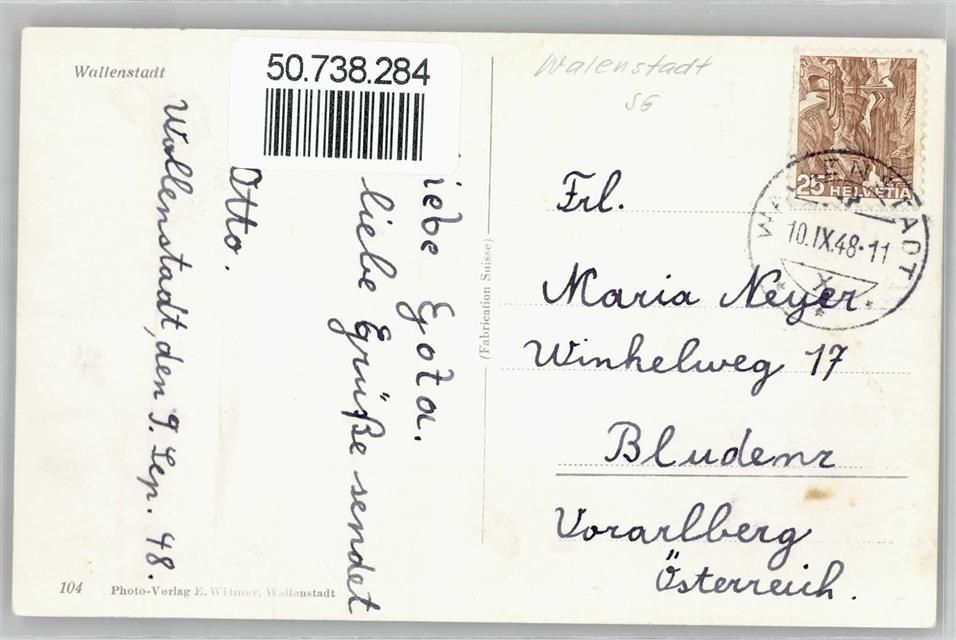 Wallenstadt
50.738.284
Walenstadt
SG
25 HELVETIA
WALENSTADT
10.IX.48-11
X
iebe Gota.
liebe Grüße sendet
Otto.
Wallenstadt, den 9. Sep. 48.
(Fabrication Suisse)
Frl.
Maria Neyer
Winkelweg 17
Bludenz
Vorarlberg
Österreich.
104 Photo-Verlag E. Witmer, Wallenstadt